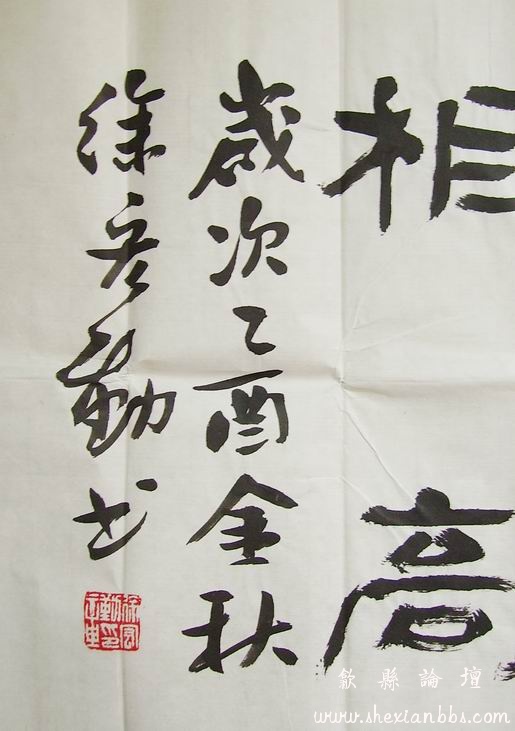 相高
歲次乙酉金秋
徐彦勤书
歙縣論壇
www.shexianbbs.com